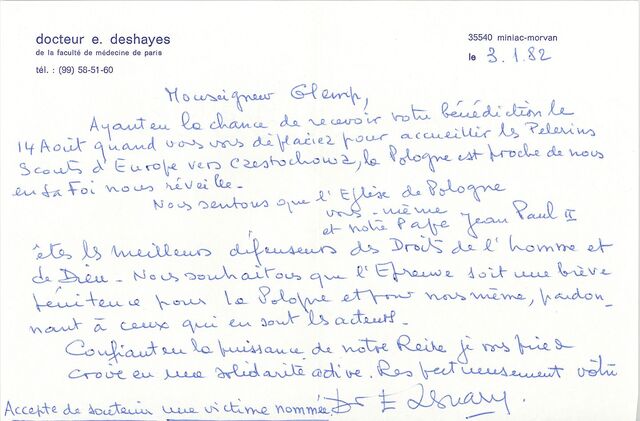 docteur e. deshayes
de la faculté de médecine de paris
tél. : (99) 58-51-60
35540 miniac-morvan
le 3.1.82
Monseigneur Glemp,
Ayant eu la chance de recevoir votre bénédiction le
14 Août quand vous vous déplaciez pour accueillir les Pelerins
Scouts d'Europe vers Czestochowa, la Pologne est proche de nous
en sa Foi nous réveille.
Nous sentons que l'Eglise de Pologne
vous-même
et notre Pape Jean Paul II
êtes les meilleurs défenseurs des Droits de l'homme et
de Dieu. Nous souhaitons que l'Epreuve soit une brève
pénitence pour la Pologne et pour nous même, pardon-
nant à ceux qui en sont les acteurs.
Confiant en la puissance de notre Reine je vous prie d
croire en une solidarité active. Respectueusement vôtre
Accepte de soutenir une victime nommée Dr E